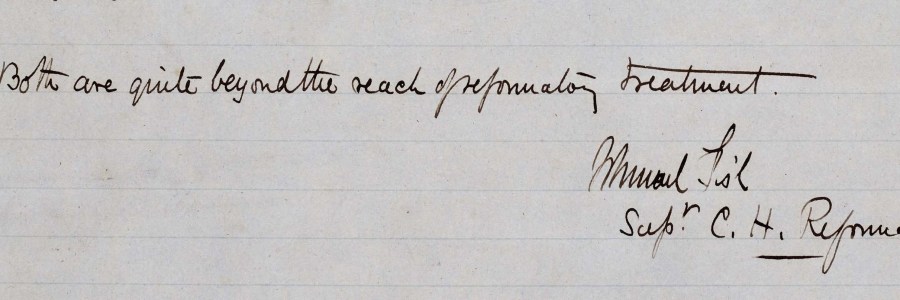 Both are quite beyond the reach of reformatory treatment.
Supr. C. H. Reforma